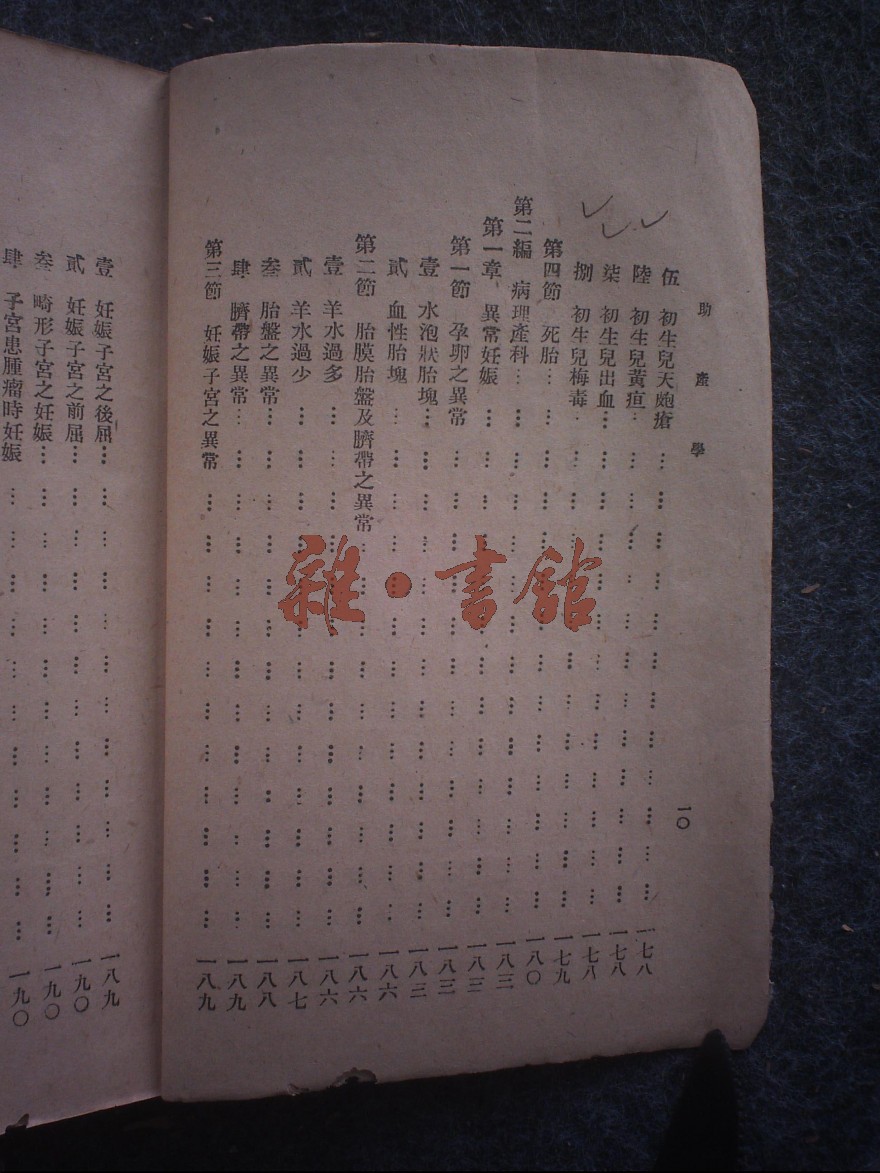 助產學
一〇
伍 初生兒天皰瘡……一七八
陸 初生兒黃疸……一七八
柒 初生兒出血……一七八
捌 初生兒梅毒……一七九
第四節 死胎……一八〇
第二編 病理產科……一八三
第一章 異常妊娠……一八三
第一節 孕卵之異常……一八三
壹 水泡狀胎塊……一八三
貳 血性胎塊……一八六
第二節 胎膜胎盤及臍帶之異常……一八六
壹 羊水過多……一八六
貳 羊水過少……一八七
叁 胎盤之異常……一八八
肆 臍帶之異常……一八九
第三節 妊娠子宮之異常……一八九
壹 妊娠子宮之後屈……一八九
貳 妊娠子宮之前屈……一九〇
叁 畸形子宮之妊娠……一九〇
肆 子宮患腫瘤時妊娠……一九〇
雜·書館